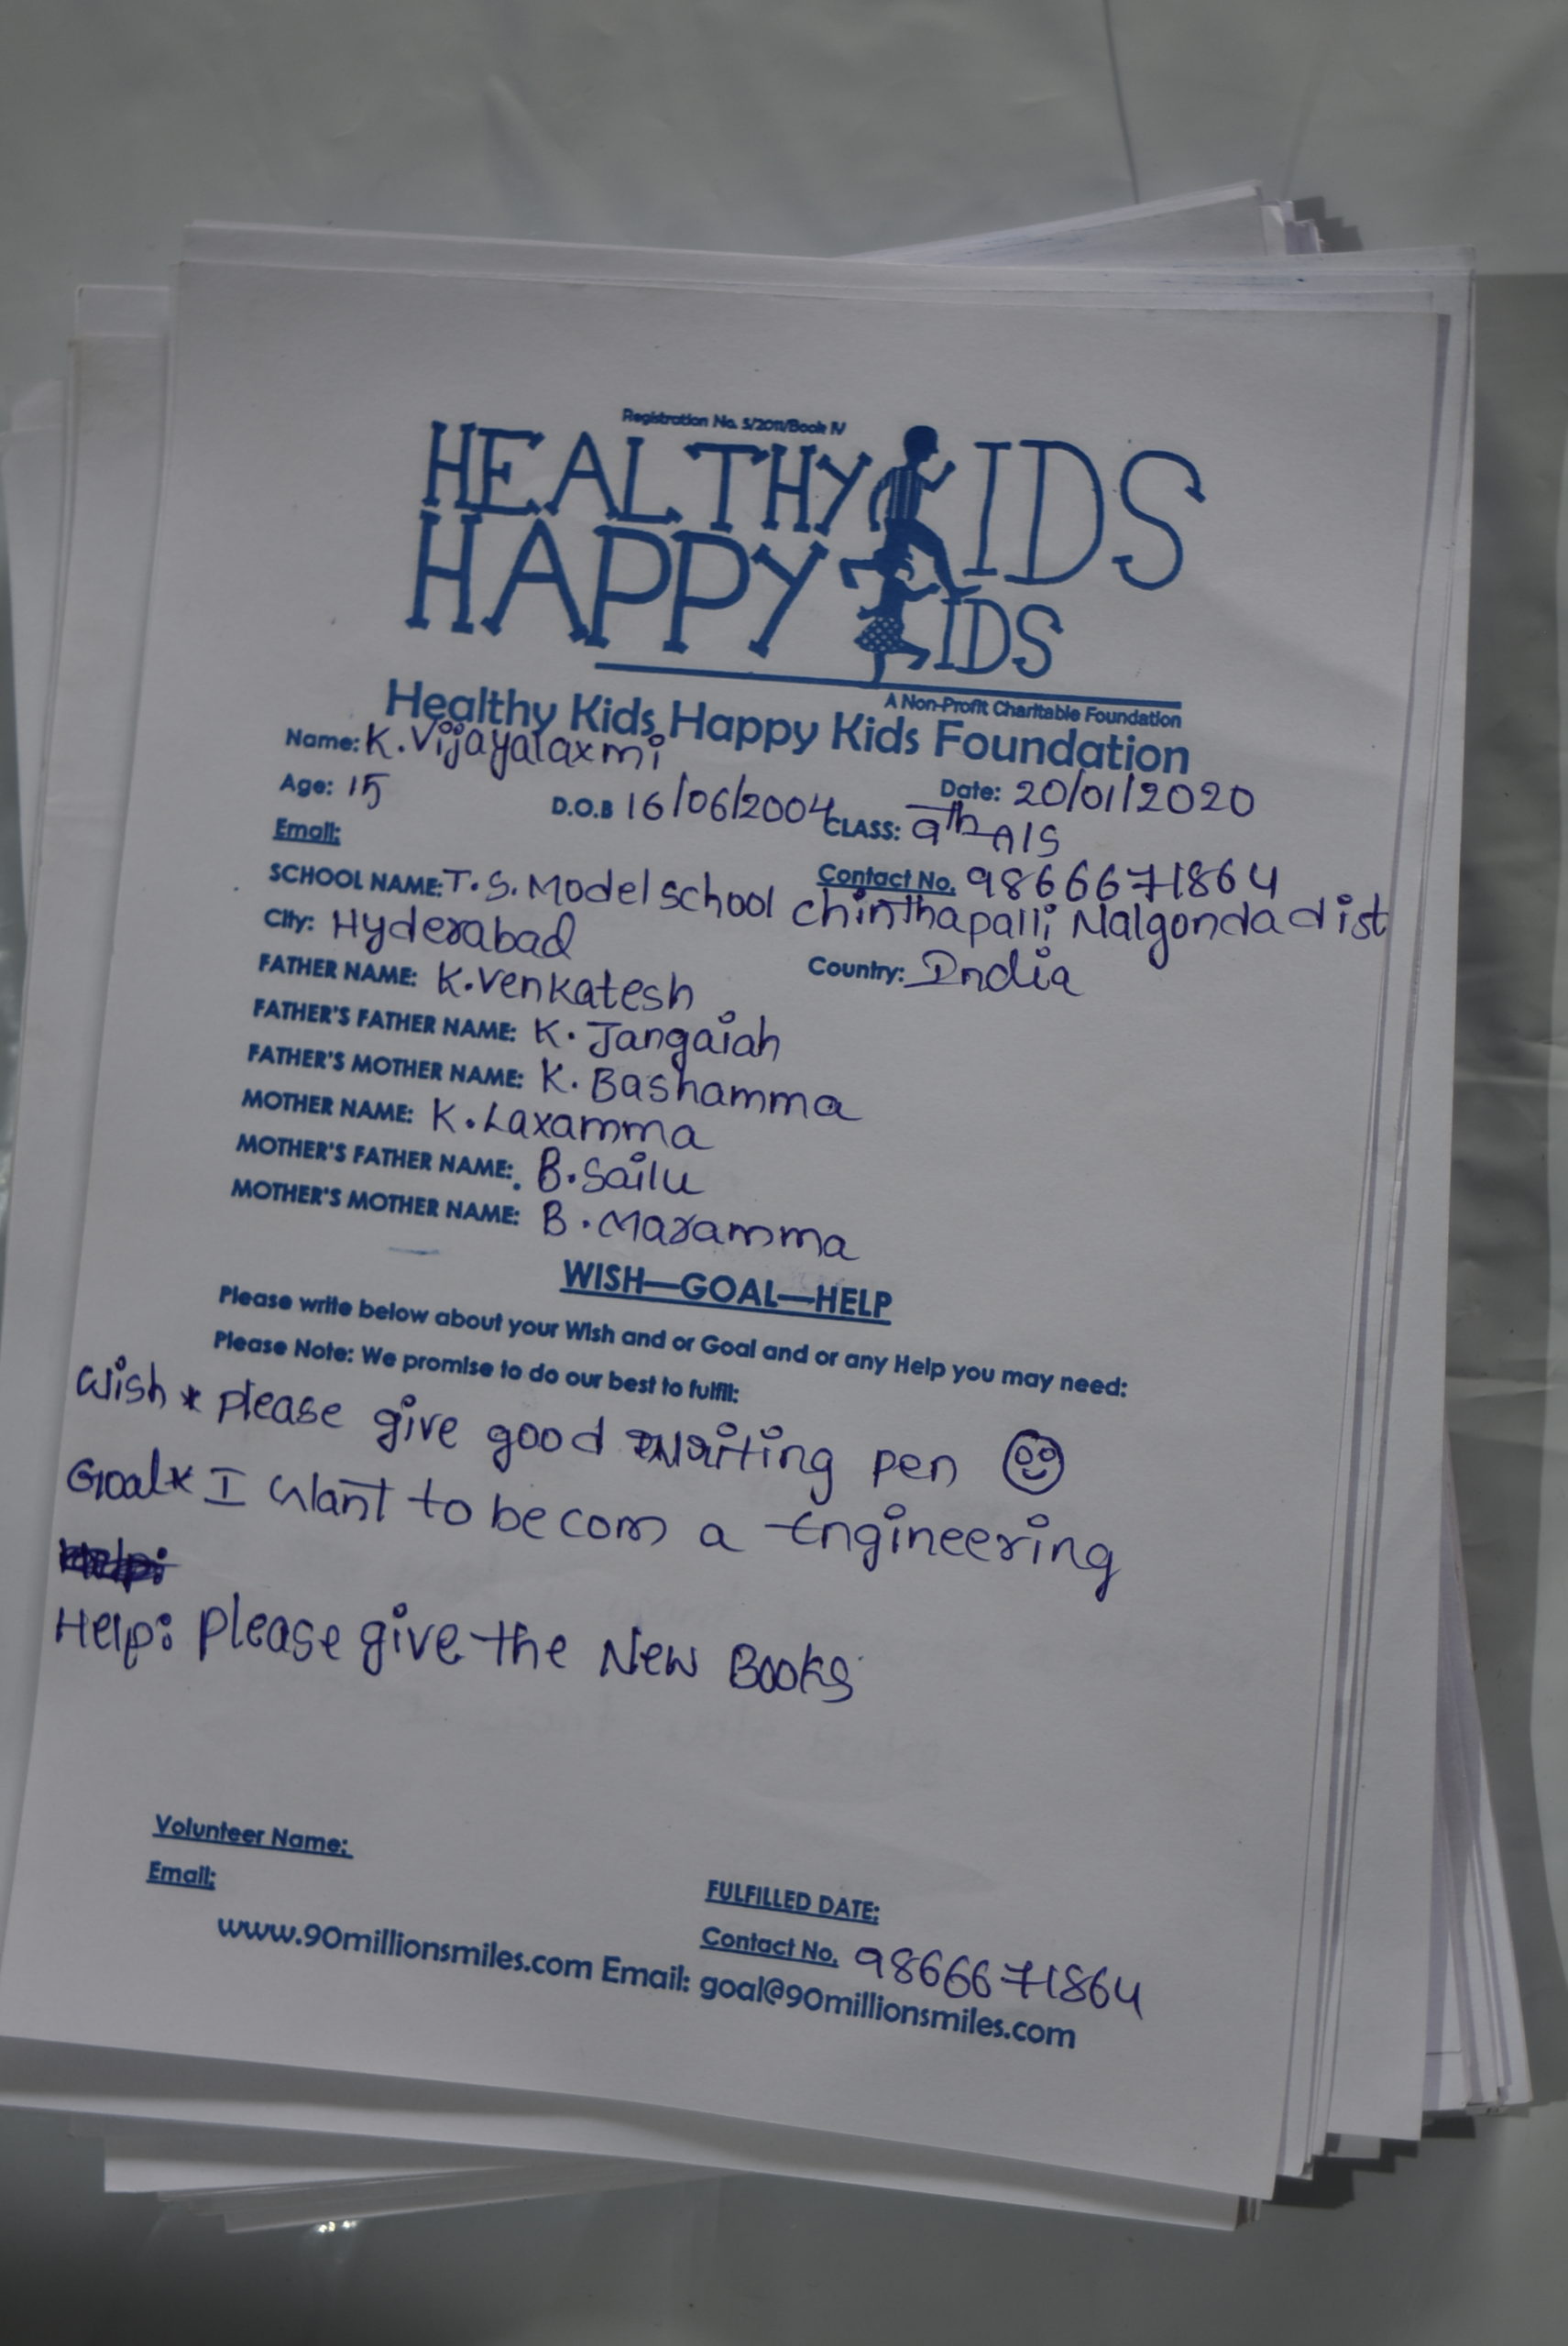 Registration No. 5/2011/Book IV
HEALTHY KIDS
HAPPY KIDS
A Non-Profit Charitable Foundation
Healthy Kids Happy Kids Foundation
Name: K.Vijayalaxmi
Date: 20/01/2020
Age: 15 D.O.B 16/06/2004 CLASS: 9th A/S
Email: Contact No. 9866671864
SCHOOL NAME: T.S. Model school chinthapalli Nalgonda dist
City: Hyderabad Country: India
FATHER NAME: K.Venkatesh
FATHER'S FATHER NAME: K. Jangaiah
FATHER'S MOTHER NAME: K. Bashamma
MOTHER NAME: K.Laxamma
MOTHER'S FATHER NAME: B.Sailu
MOTHER'S MOTHER NAME: B.Maramma
WISH—GOAL—HELP
Please write below about your Wish and or Goal and or any Help you may need:
Please Note: We promise to do our best to fulfil:
Wish * please give good writing pen
Goal * I want to be com a Engineering
Help: please give the New Books
Volunteer Name: FULFILLED DATE:
Email: Contact No. 9866671864
www.90millionsmiles.com Email: goal@90millionsmiles.com